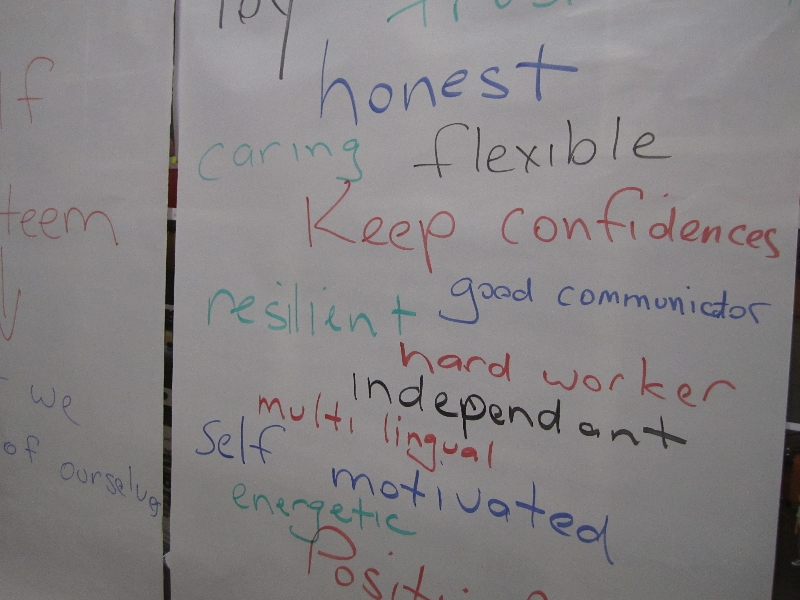 lf
teem
we
of ourselves
honest
caring flexible
Keep confidences
resilient good communictor
hard worker
independant
multi lingual
self motivated
energetic